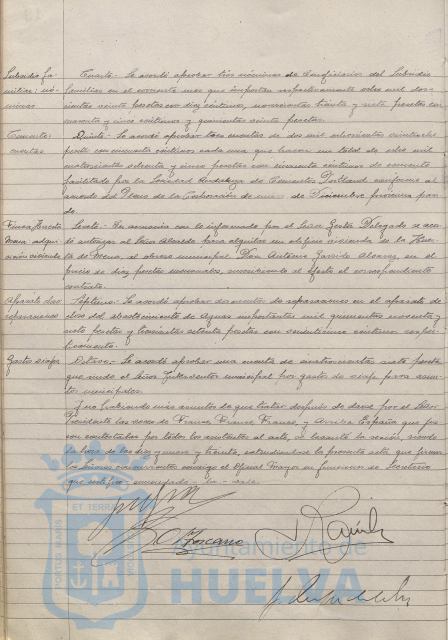 Subsidio fa-
miliar: nó-
minas
Cuarto.- Se acordó aprobar tres nóminas de beneficiarios del Subsidio
familiar en el corriente mes que importan respectivamente ocho mil dos-
cientas veinte pesetas con diez céntimos, novecientas treinta y siete pesetas con
cuarenta y cinco céntimos y quinientas veinte pesetas.
Cemento:
cuentas
Quinto.- Se acordó aprobar tres cuentas de dos mil
peseta con cincuenta céntimos cada una que hacen un total de ocho mil
cuatrocientas ochenta y cinco pesetas con cincuenta céntimos de cemento
facilitado por la Sociedad Andaluza de Cementos Portland conforme al
acuerdo del Pleno de la Corporación de de Diciembre próximo pasa-
do.
Finca Huerta
Mena, adqui-
sición vivienda
Sexto.- De acuerdo con lo informado por el Gestor Delegado se acor-
dó autorizar al Señor Alcalde para alquilar en vivienda de la Huer-
ta de Mena, al obrero municipal Don Antonio Garrido Alvarez, en el
precio de diez pesetas mensuales, suscribiendo al efecto el correspondiente
contrato.
Aparato cloro
reparaciones
Séptimo.- Se acordó aprobar de reparaciones en el aparato de
cloro del abastecimiento de Aguas importantes mil quinientas noventa y
siete pesetas y trescientas setenta pesetas con céntimos res-
pectivamente.
Gastos viajes
Octavo.- Se acordó aprobar una cuenta de cientocuarenta y siete pesetas
que rinde el Señor Interventor municipal por gastos de viaje para asun-
tos municipales.
Y no habiendo más asuntos de que tratar después de darse por el Señor
Presidente las voces de Franco, Franco, Franco, y Arriba España que fue-
ron contestadas por todos los asistentes al acto, se levantó la sesión, siendo
la hora de las diez y nueve y treinta, extendiéndose la presente acta que firman
los Señores concurrentes conmigo el Oficial Mayor en funciones de Secretario
que certifico.
Toscano
ET TERRAE
PORTUS MARIS
Ayuntamiento de
HUELVA